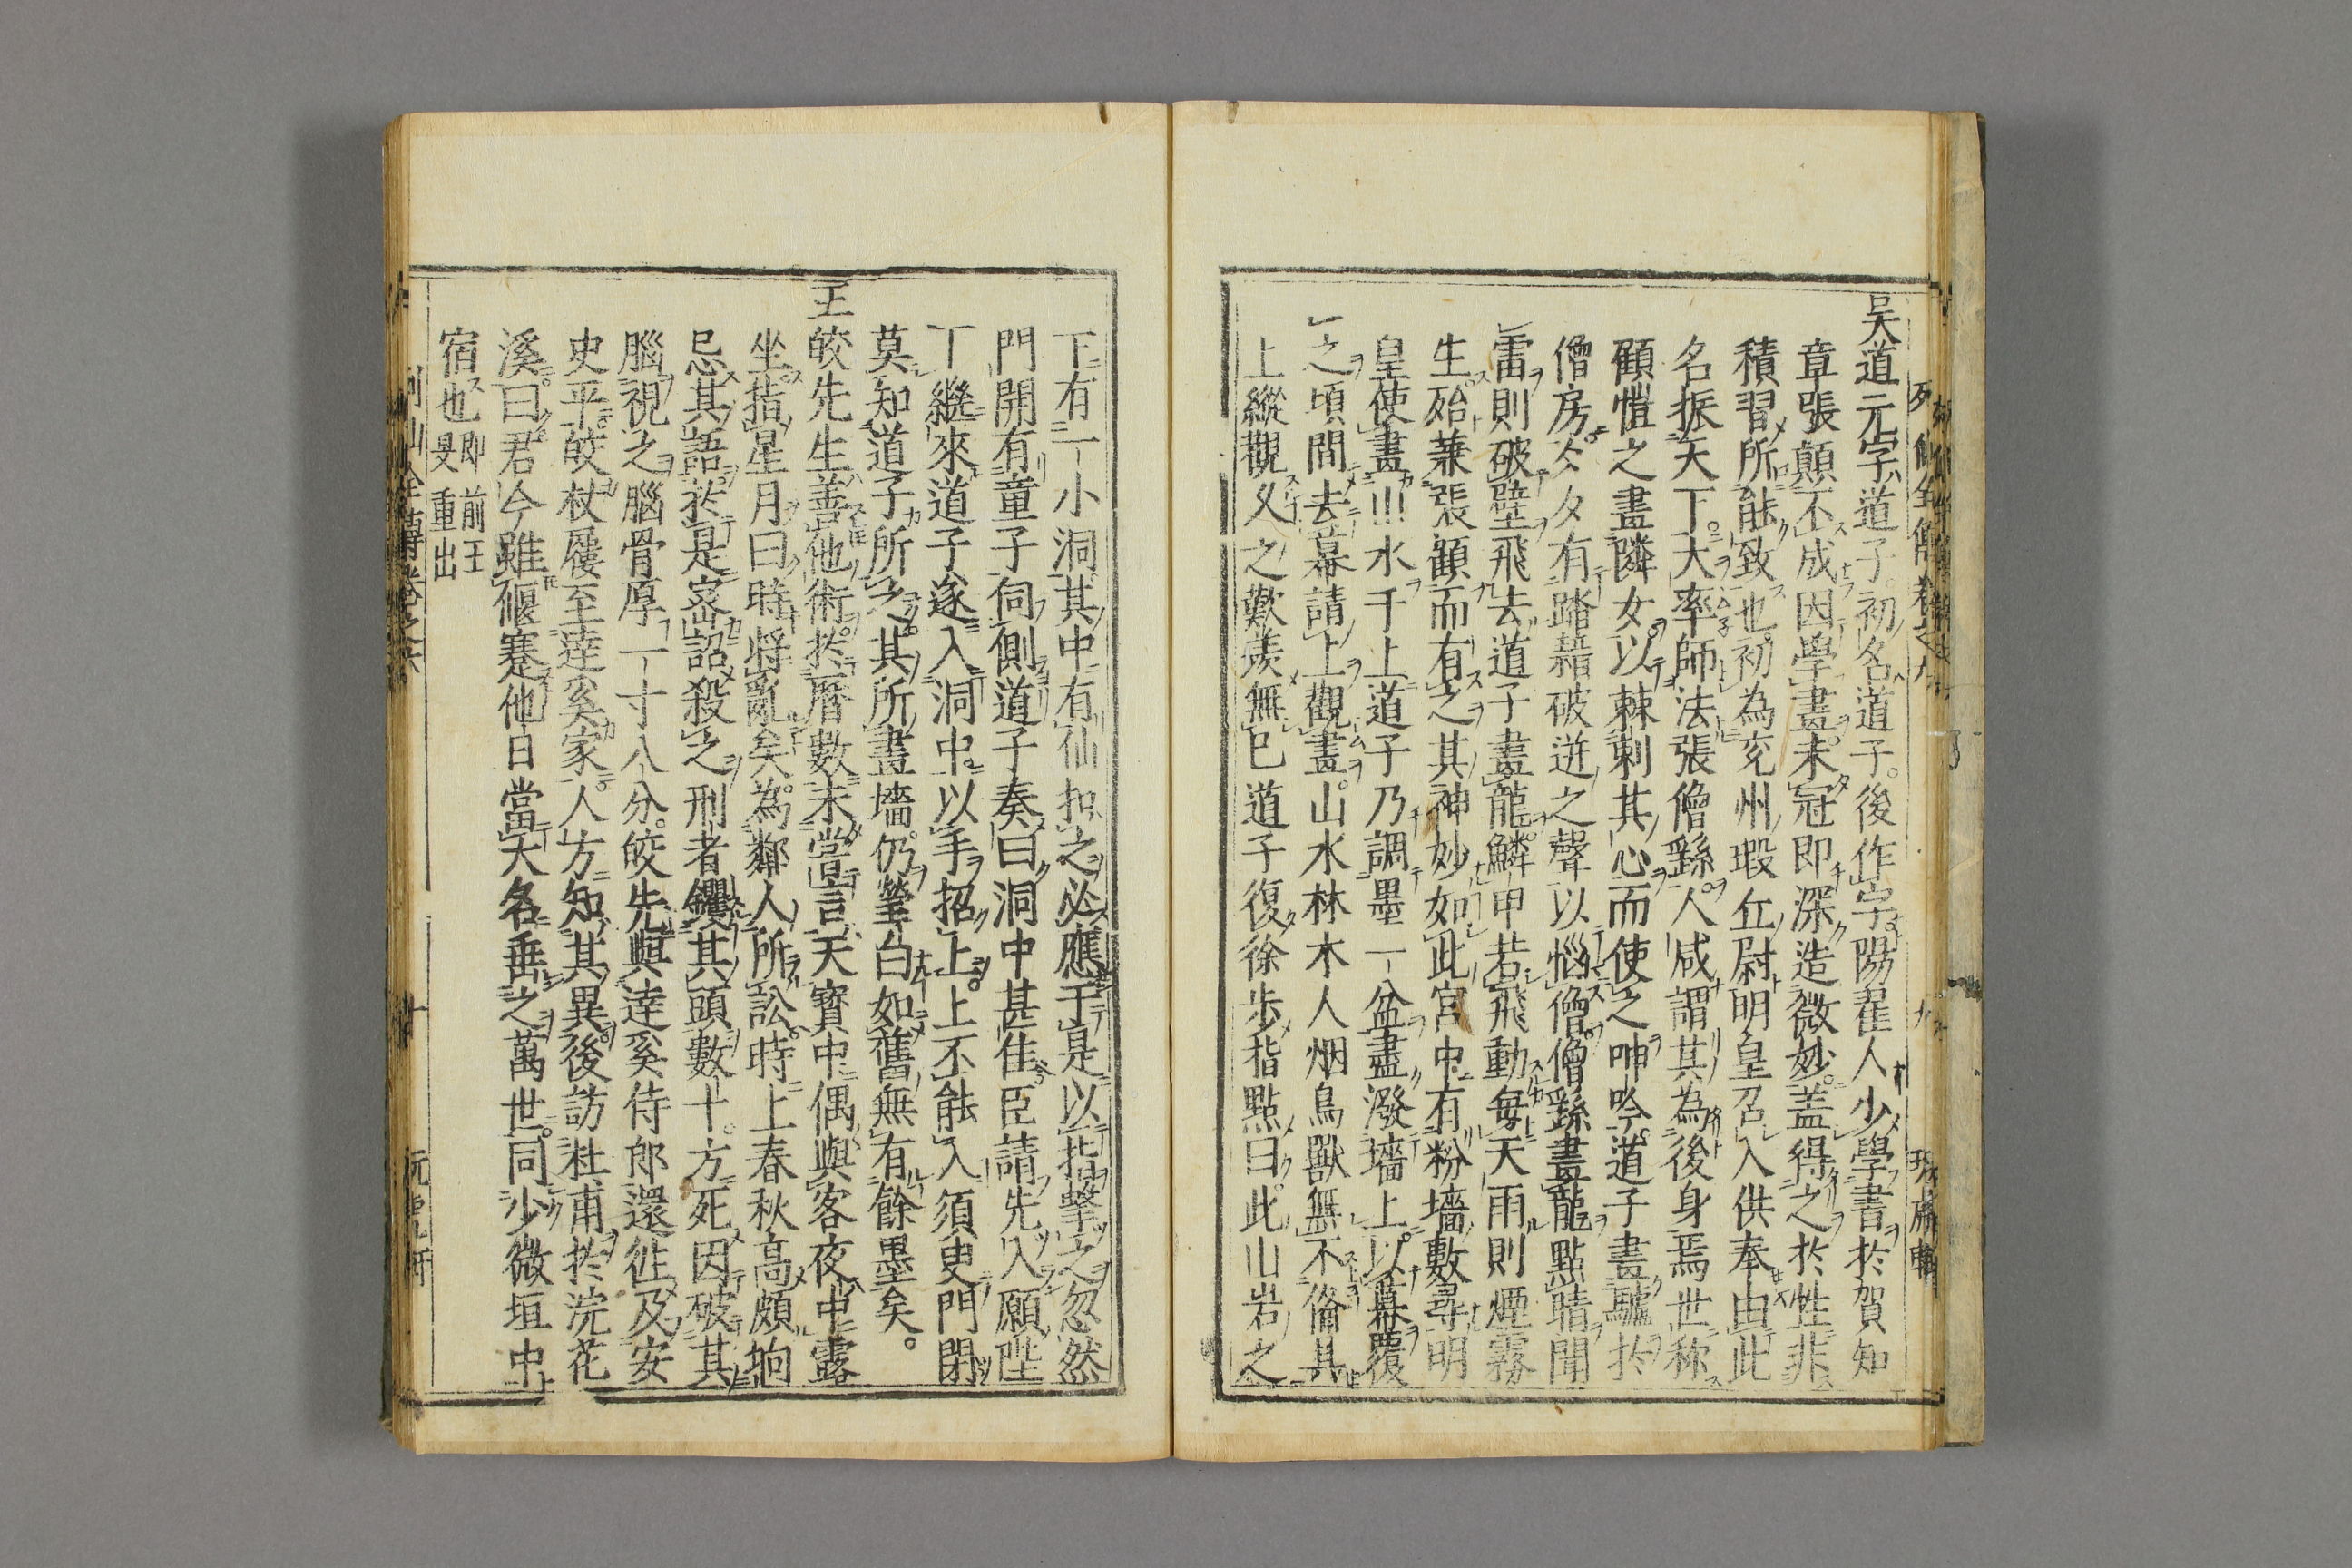 吴道元字道子初名道子後作字陽翟人少學書於賀知
章張顛不成因學畫未冠即深造微妙蓋得之於性非
積習所能致也初為兖州瑕丘尉明皇召入供奉由此
名振天下大率師法張僧繇人咸謂其為後身焉世称
顧愷之畫隣女以棘刺其心而使之呻吟道子畫驢於
僧房今夕有踏藉破迸之聲以惱僧僧繇畫龍點睛聞
雷則破壁飛去道子畫龍鱗甲若飛動每天雨則煙霧
生殆兼張顧而有之其神妙如此宮中有粉墻數尋明
皇使畫山水于上道子乃調墨一盆盡潑墻上以幕覆
之頃間去幕請上觀畫山水林木人烟鳥獸無不俻具
上縱觀久之歎羨無已道子復徐步指點曰此山岩之
下有一小洞其中有仙扣之必應于是以指擊之忽然
門開有童子伺側道子奏曰洞中甚佳臣請先入願陛
下繼來道子遂入洞中以手招上上不能入須臾門閉
莫知道子所之其所畫墻仍瑩白如舊無有餘墨矣
王皎先生善他術於曆數未嘗言天寶中偶與客夜中露
坐指星月曰時將亂矣為鄰人所訟時上春秋高頗拘
忌其語於是密詔殺之刑者钁其頭數十方死因破其
腦視之腦骨厚一寸八分皎先與達奚侍郎還徃及安
史平皎杖屨至達奚家人方知其異後訪杜甫於浣花
溪曰君今雖偃蹇他日當大名垂之萬世同少微垣中
宿也即前王
旻重出